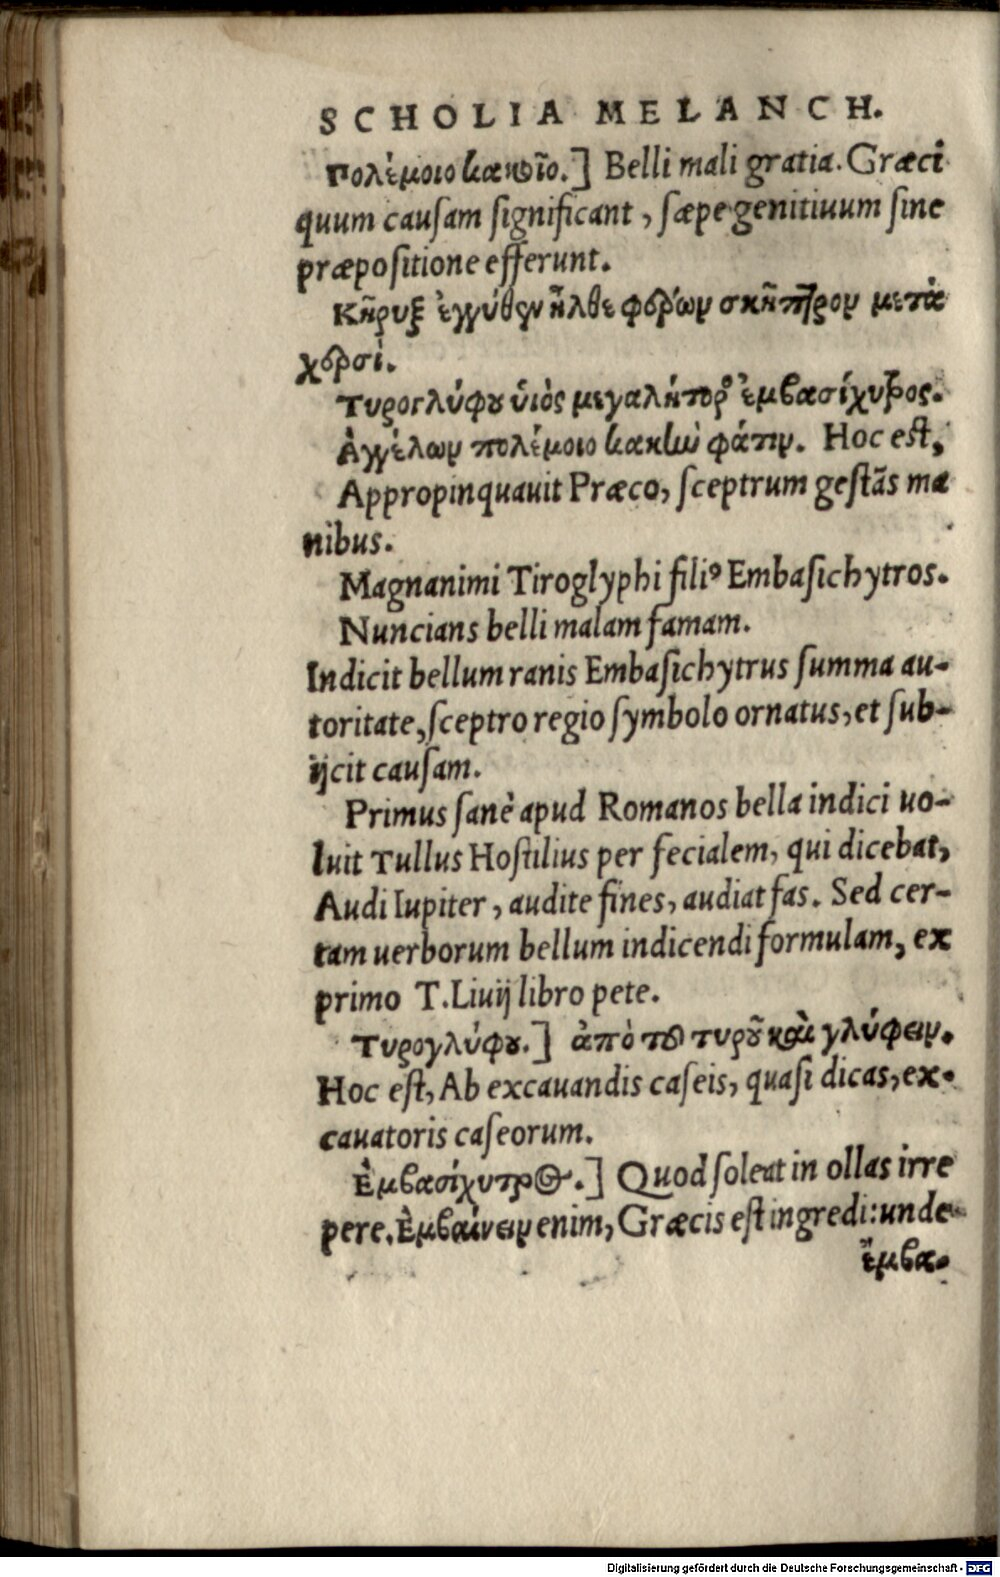 SCHOLIA MELANCH.
Πολέμοιο κακοῖο.] Belli mali gratia. Græci
quum causam significant, sæpe genitiuum sine
præpositione efferunt.
Κῆρυξ ἐγγύθεν ἦλθε φέρων σκῆπτρον μετὰ
χερσί.
Τυρογλύφου ὑιὸς μεγαλήτορος ἐμβασίχυτρος.
Ἀγγέλων πολέμοιο κακὴν φάτιν. Hoc est,
Appropinquauit Præco, sceptrum gestãs ma
nibus.
Magnanimi Tiroglyphi filiꝰ Embasichytros.
Nuncians belli malam famam.
Indicit bellum ranis Embasichytrus summa au-
toritate, sceptro regio symbolo ornatus, et sub-
ijcit causam.
Primus sanè apud Romanos bella indici uo-
luit Tullus Hostilius per fecialem, qui dicebat,
Audi Iupiter, audite fines, audiat fas. Sed cer-
tam uerborum bellum indicendi formulam, ex
primo T. Liuij libro pete.
Τυρογλύφου.] ἀπὸ τοῦ τυροῦ καὶ γλύφειν.
Hoc est, Ab excauandis caseis, quasi dicas, ex-
cauatoris caseorum.
Ἐμβασίχυτρος.] Quod soleat in ollas irre
pere. Ἐμβαίνειν enim, Græcis est ingredi: unde
ἔμβα-
Digitalisierung gefördert durch die Deutsche Forschungsgemeinschaft - DFG